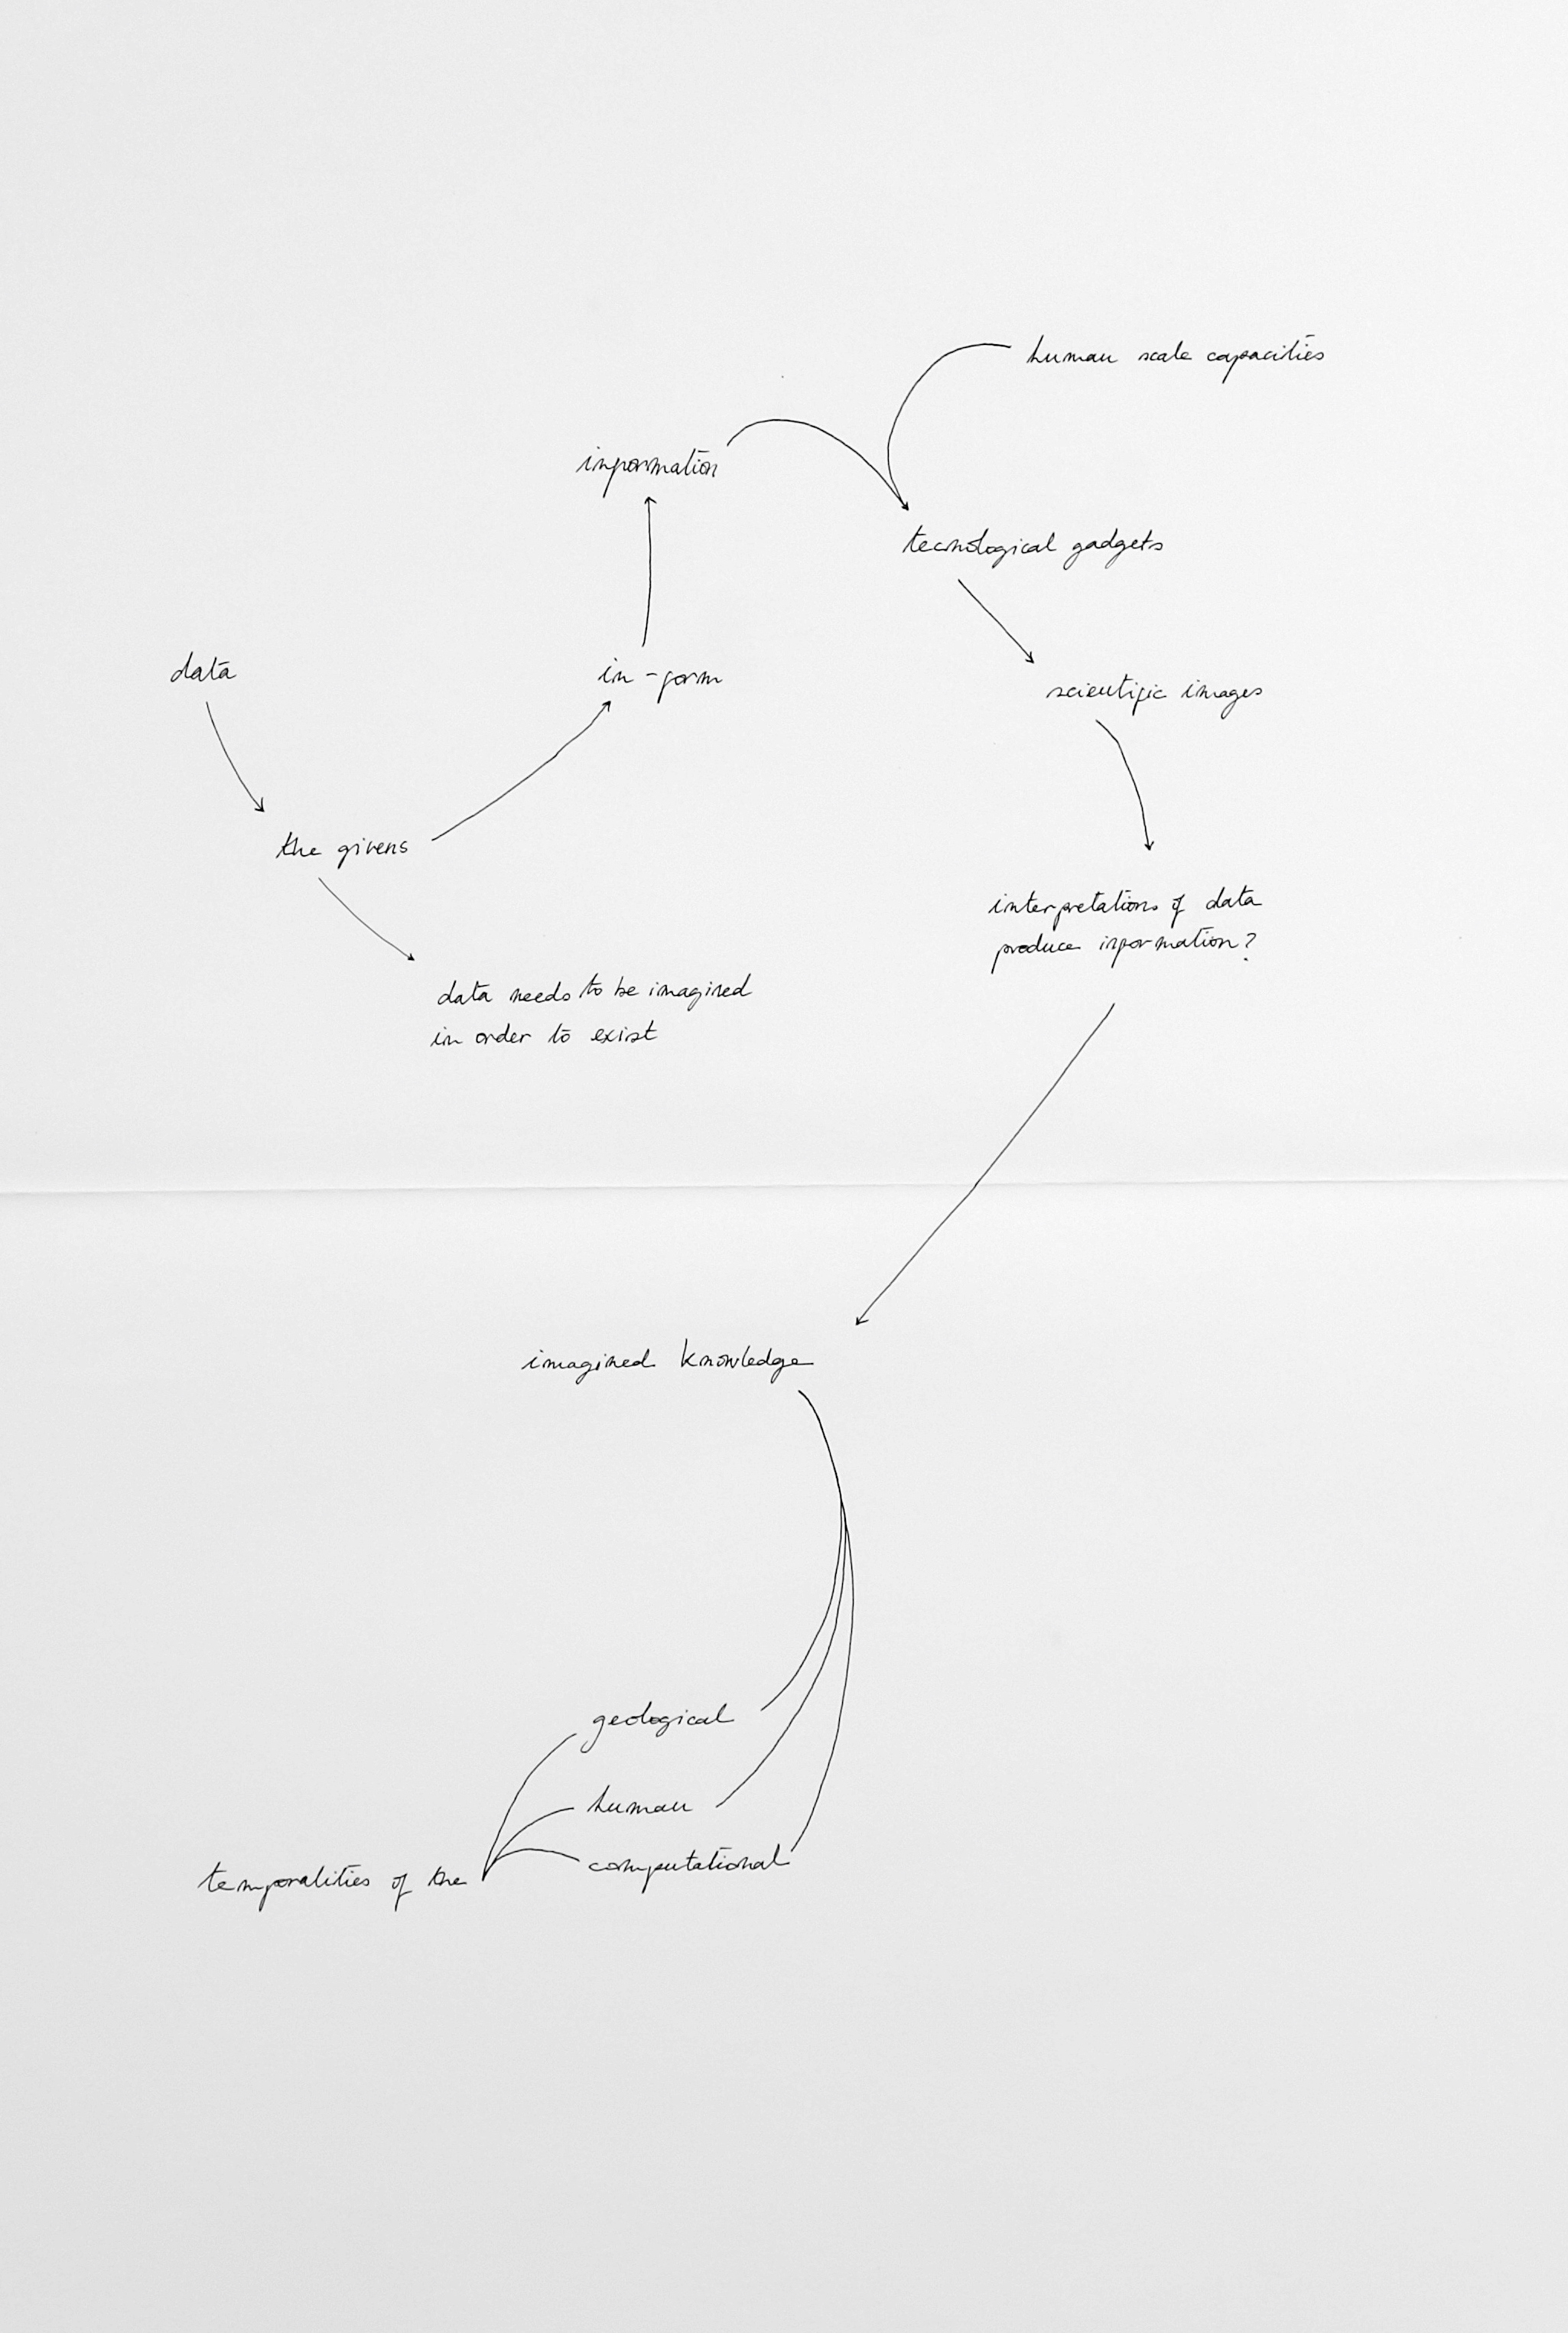 human scale capacities
information
tecnological gadgets
data
in-form
scientific images
the givens
interpretations of data
produce information?
data needs to be imagined
in order to exist
imagined knowledge
geological
human
computational
temporalities of the